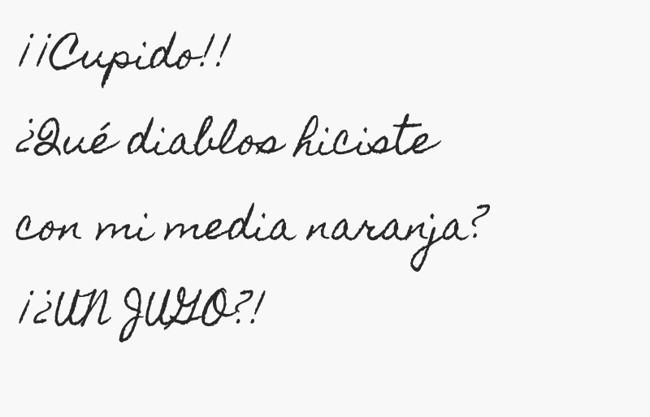 ¡¡Cupido!!
¿Qué diablos hiciste
con mi media naranja?
¡¿UN JUGO?!